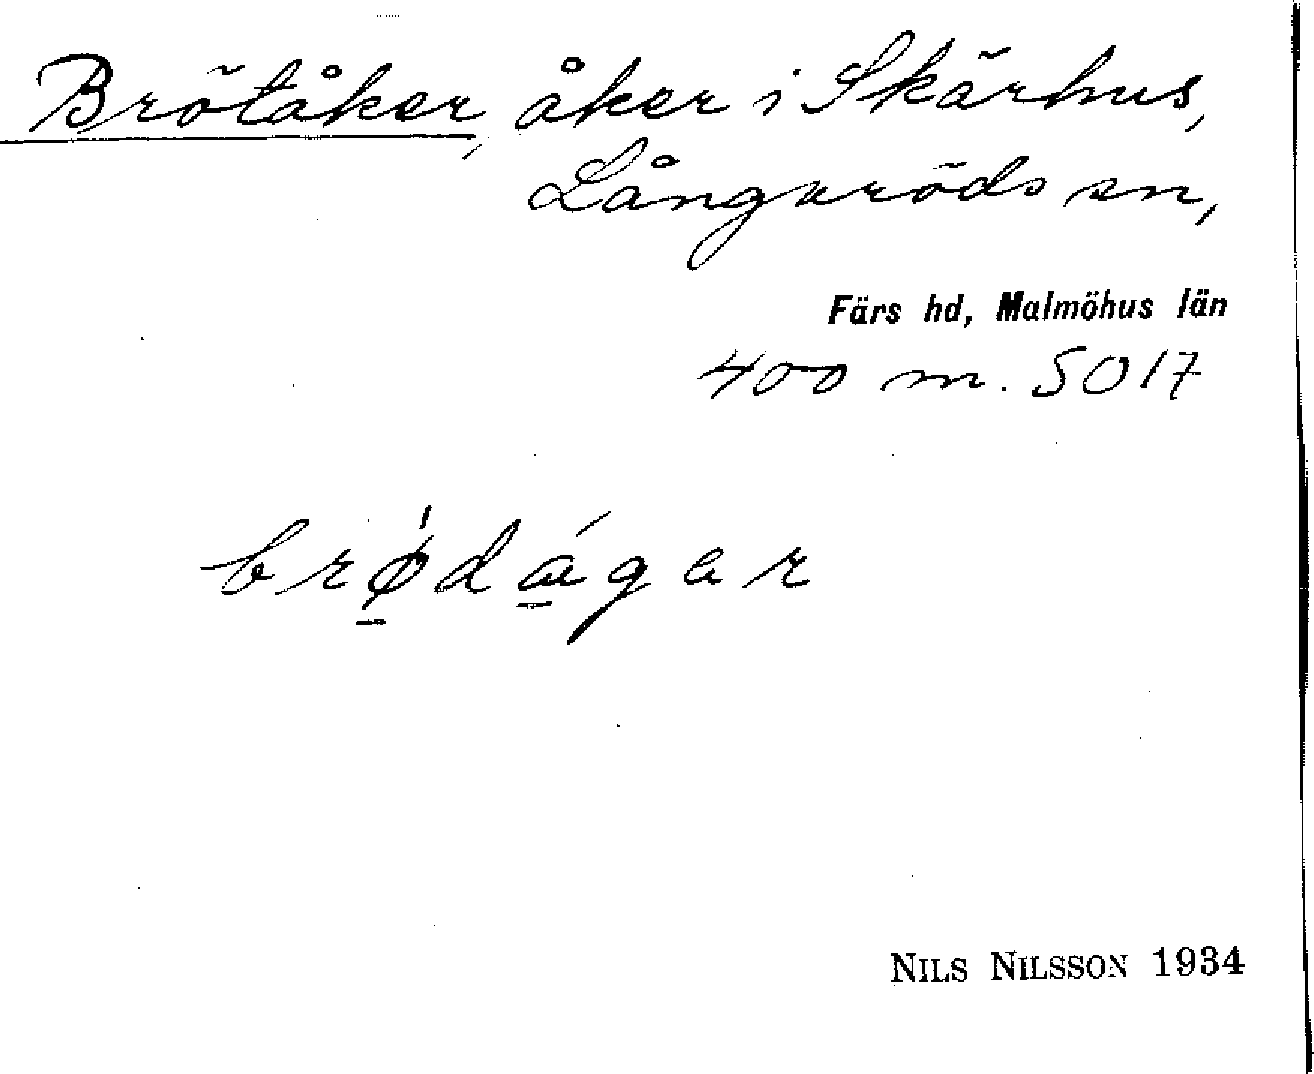 Brötåker, åker i Skärhus,
Långaröds sn,
Färs hd, Malmöhus län
400 m. SO 17
brø̱̍dágar
NILS NILSSON 1934